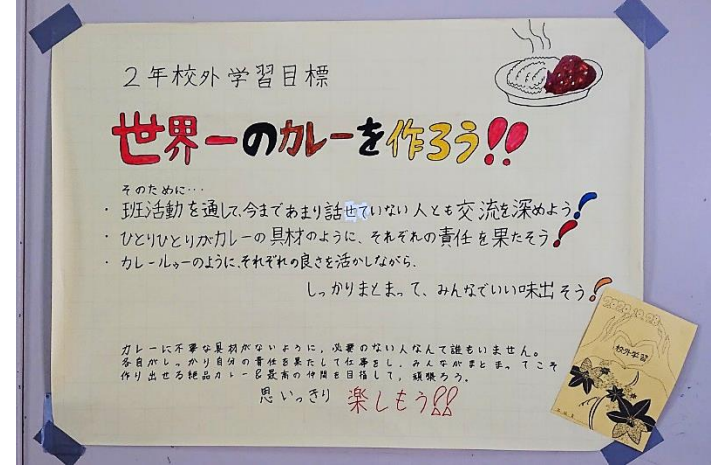 2年校外学習目標
世界一のカレーを作ろう!!
そのために…
・班活動を通して、今まであまり話せていない人とも交流を深めよう!
・ひとりひとりがカレーの具材のように、それぞれの責任を果たそう!
・カレールゥーのように、それぞれの良さを活かしながら、
しっかりまとまって、みんなでいい味出そう!
カレーに不要な具材がないように、必要のない人なんて誰もいません。
各自がしっかり自分の責任を果たして仕事をし、みんながまとまってこそ
作り出せる絶品カレー&最高の仲間を目指して、頑張ろう。
思いっきり 楽しもう!!
校外学習